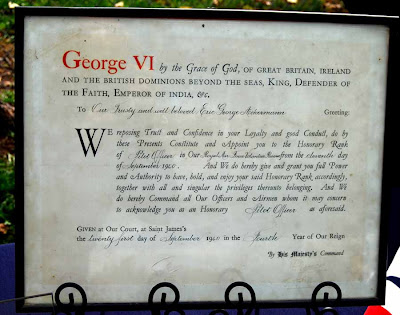 George VI by the Grace of God, OF GREAT BRITAIN, IRELAND
AND THE BRITISH DOMINIONS BEYOND THE SEAS, KING, DEFENDER OF
THE FAITH, EMPEROR OF INDIA, &c.
To Our Trusty and well beloved Eric George Ackermann Greeting:
WE reposing Trust and Confidence in your Loyalty and good Conduct, do by
these Presents Constitute and Appoint you to the Honorary Rank
of Pilot Officer in Our Royal Air Force Volunteer Reserve from the eleventh day
of September 1940. And We do hereby give and grant you full Power
and Authority to have, hold, and enjoy your said Honorary Rank accordingly,
together with all and singular the privileges thereunto belonging. And We
do hereby Command all Our Officers and Airmen whom it may concern
to acknowledge you as an Honorary Pilot Officer as aforesaid.
GIVEN at Our Court, at Saint James's
the twenty first day of September 1940 in the Fourth Year of Our Reign
By His Majesty's Command